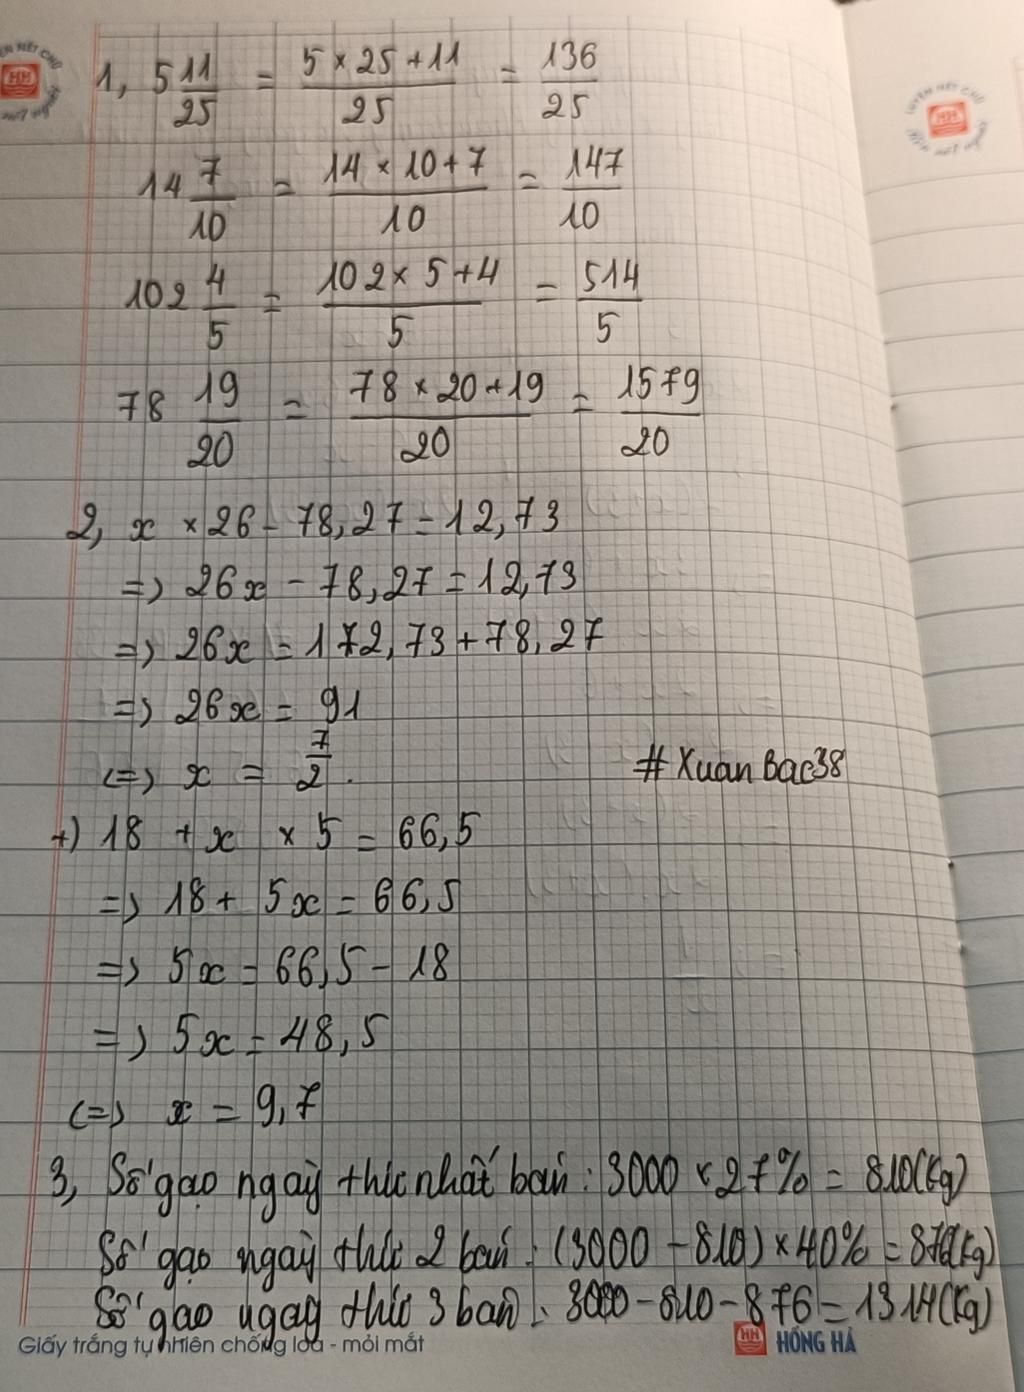 1, 5 11/25 = (5 × 25 + 11)/25 = 136/25
14 7/10 = (14 × 10 + 7)/10 = 147/10
102 4/5 = (102 × 5 + 4)/5 = 514/5
78 19/20 = (78 × 20 + 19)/20 = 1579/20
2, x × 26 - 78,27 = 12,73
=> 26x - 78,27 = 12,73
=> 26x = 172,73 + 78,27
=> 26x = 91
<=> x = 7/2.
# Xuan Bac38
+) 18 + x × 5 = 66,5
=> 18 + 5x = 66,5
=> 5x = 66,5 - 18
=> 5x = 48,5
<=> x = 9,7
3, Số gạo ngày thứ nhất bán : 3000 × 27% = 810(kg)
Số gạo ngày thứ 2 bán : (3000 - 810) × 40% = 876(kg)
Số gạo ngày thứ 3 bán : 3000 - 810 - 876 = 1314(kg)
Giấy trắng tự nhiên chống lóa - mỏi mắt
HH HỒNG HÀ
HH
HH